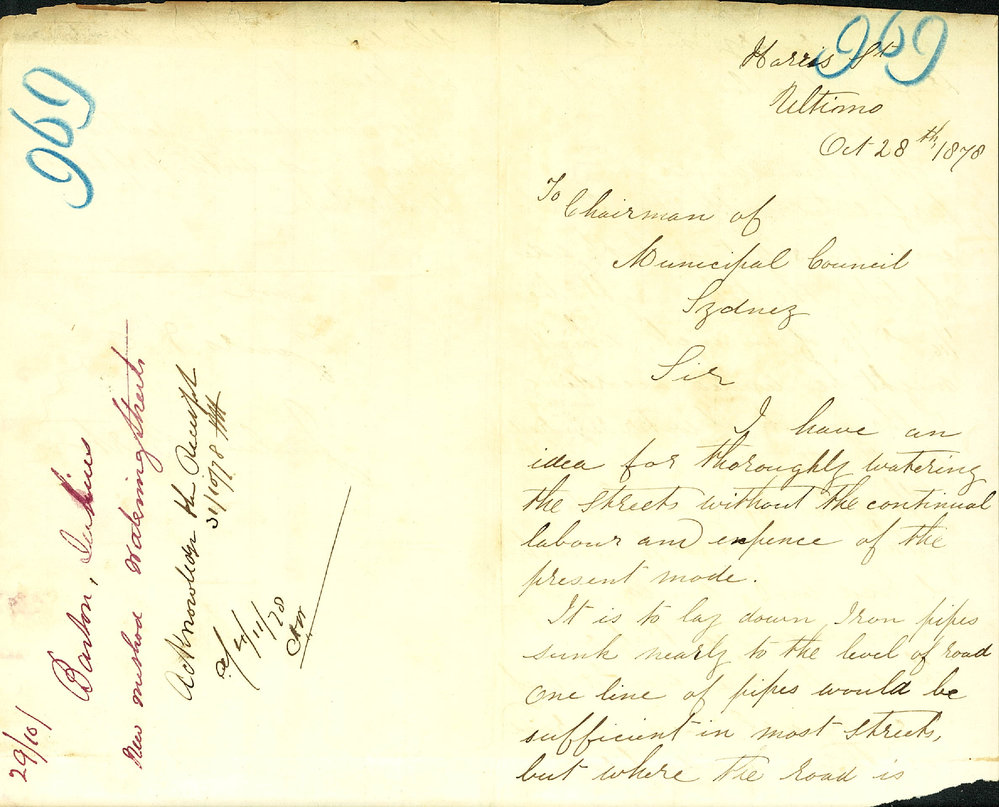 969
29/10/
Barton, Jenkins
New method Watering Streets
Acknowledge the Receipt
31/10/78
4/11/78
969
Harris St
Ultimo
Oct 28th, 1878
To Chairman of
Municipal Council
Sydney
Sir
I have an
idea for thoroughly watering
the streets without the continual
labour and expence of the
present mode.
It is to lay down Iron pipes
sunk nearly to the level of road
One line of pipes would be
sufficient in most streets,
but where the road is